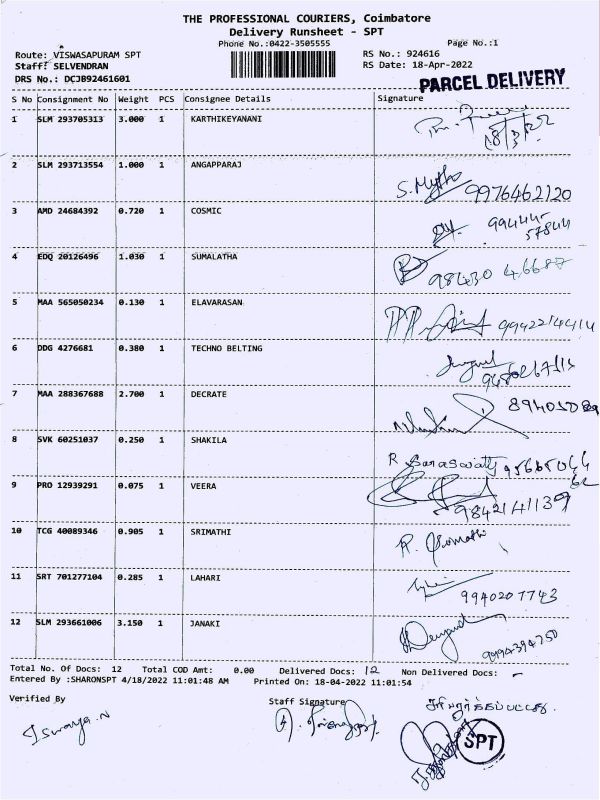 THE PROFESSIONAL COURIERS, Coimbatore
Delivery Runsheet - SPT
Phone No.:0422-3505555 Page No.:1
Route: VISWASAPURAM SPT RS No.: 924616
Staff: SELVENDRAN RS Date: 18-Apr-2022
DRS No.: DCJB92461601
PARCEL DELIVERY
S No Consignment No Weight PCS Consignee Details Signature
1 SLM 293705313 3.000 1 KARTHIKEYANANI
2 SLM 293713554 1.000 1 ANGAPPARAJ 9976462120
3 AMD 24684392 0.720 1 COSMIC 994445
57844
4 EDQ 20126496 1.030 1 SUMALATHA 98430 46687
5 MAA 565050234 0.130 1 ELAVARASAN 9942214414
6 DDG 4276681 0.380 1 TECHNO BELTING
7 MAA 288367688 2.700 1 DECRATE
8 SVK 60251037 0.250 1 SHAKILA R Saraswathy
9 PRO 12939291 0.075 1 VEERA 9842141139
10 TCG 40089346 0.905 1 SRIMATHI
11 SRT 701277104 0.285 1 LAHARI 9940207743
12 SLM 293661006 3.150 1 JANAKI 9994394750
Total No. Of Docs: 12 Total COD Amt: 0.00 Delivered Docs: 12 Non Delivered Docs: -
Entered By :SHARONSPT 4/18/2022 11:01:48 AM Printed On: 18-04-2022 11:01:54
Verified By Staff Signature சரிபார்க்கப்பட்டது
Iswarya.N
SPT